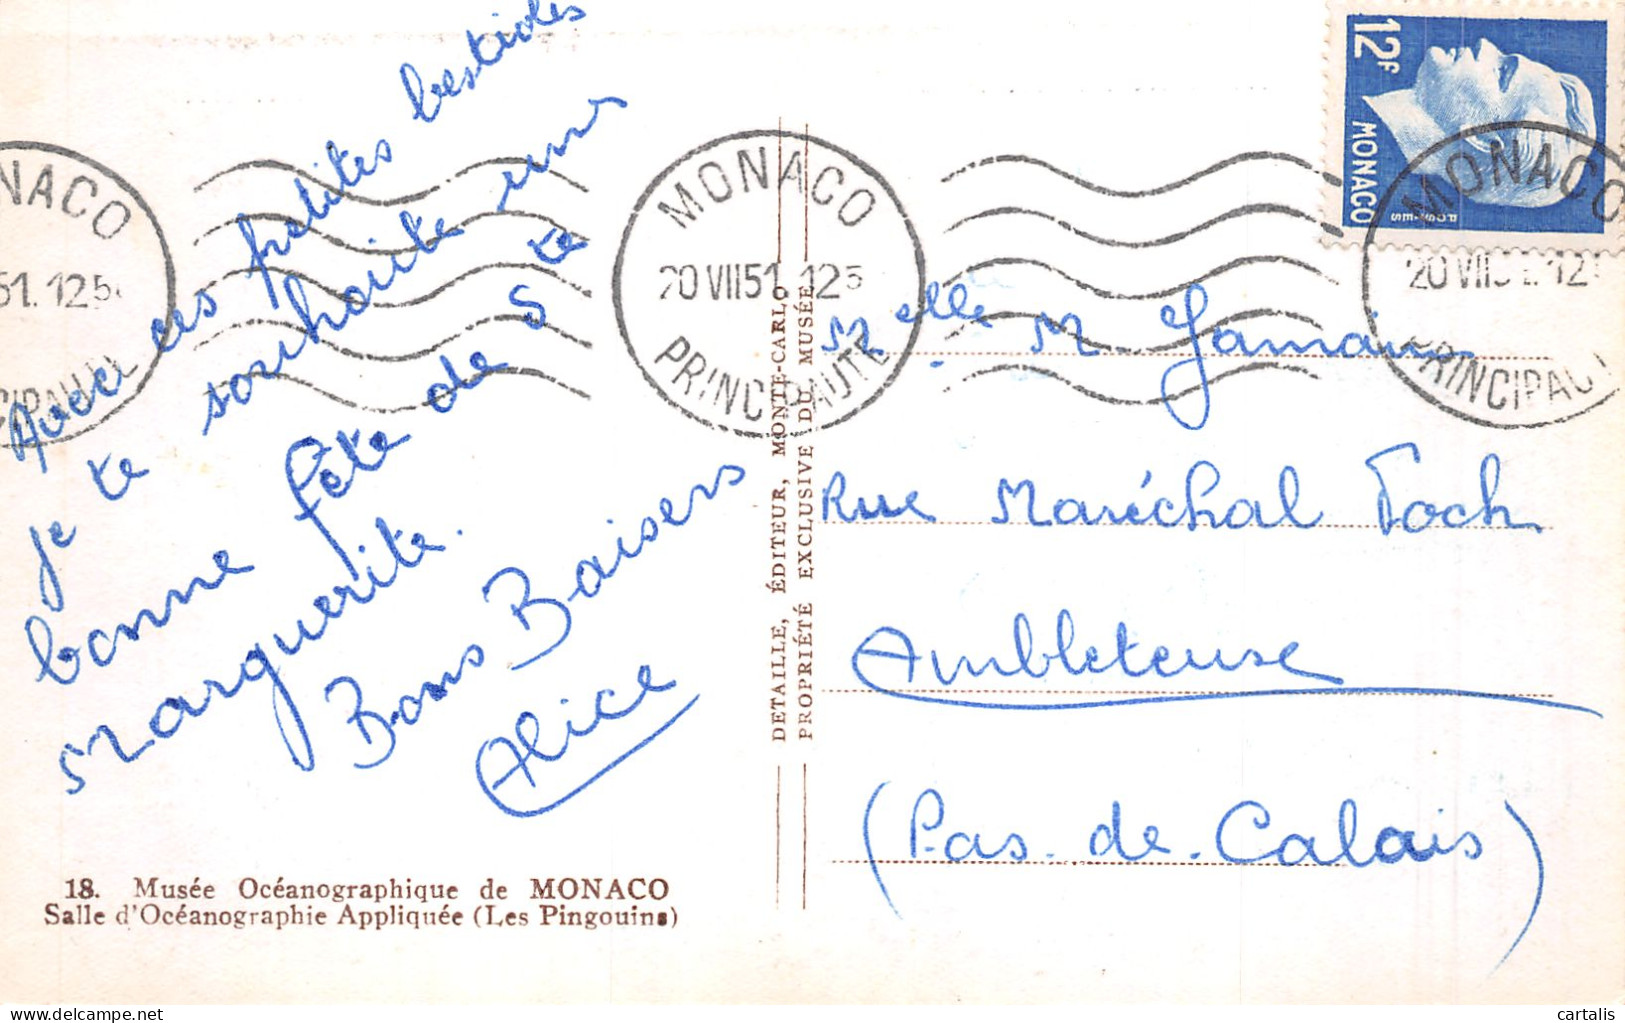 Avec ces petites bestioles
je te souhaite une
bonne fête de S te
Marguerite.
Bons Baisers
Alice
18. Musée Océanographique de MONACO
Salle d'Océanographie Appliquée (Les Pingouins)
DETAILLE, ÉDITEUR, MONTE-CARLO
PROPRIÉTÉ EXCLUSIVE DU MUSÉE
NACO
51. 125
CIPAUTE
MONACO
20 VII 51. 125
PRINCIPAUTE
12F
MONACO
POSTES
MONACO
20 VII 51. 12
PRINCIPAUT
Melle M Jamain
Rue Maréchal Foch
Ambleteuse
(Pas-de-Calais)
cartalis